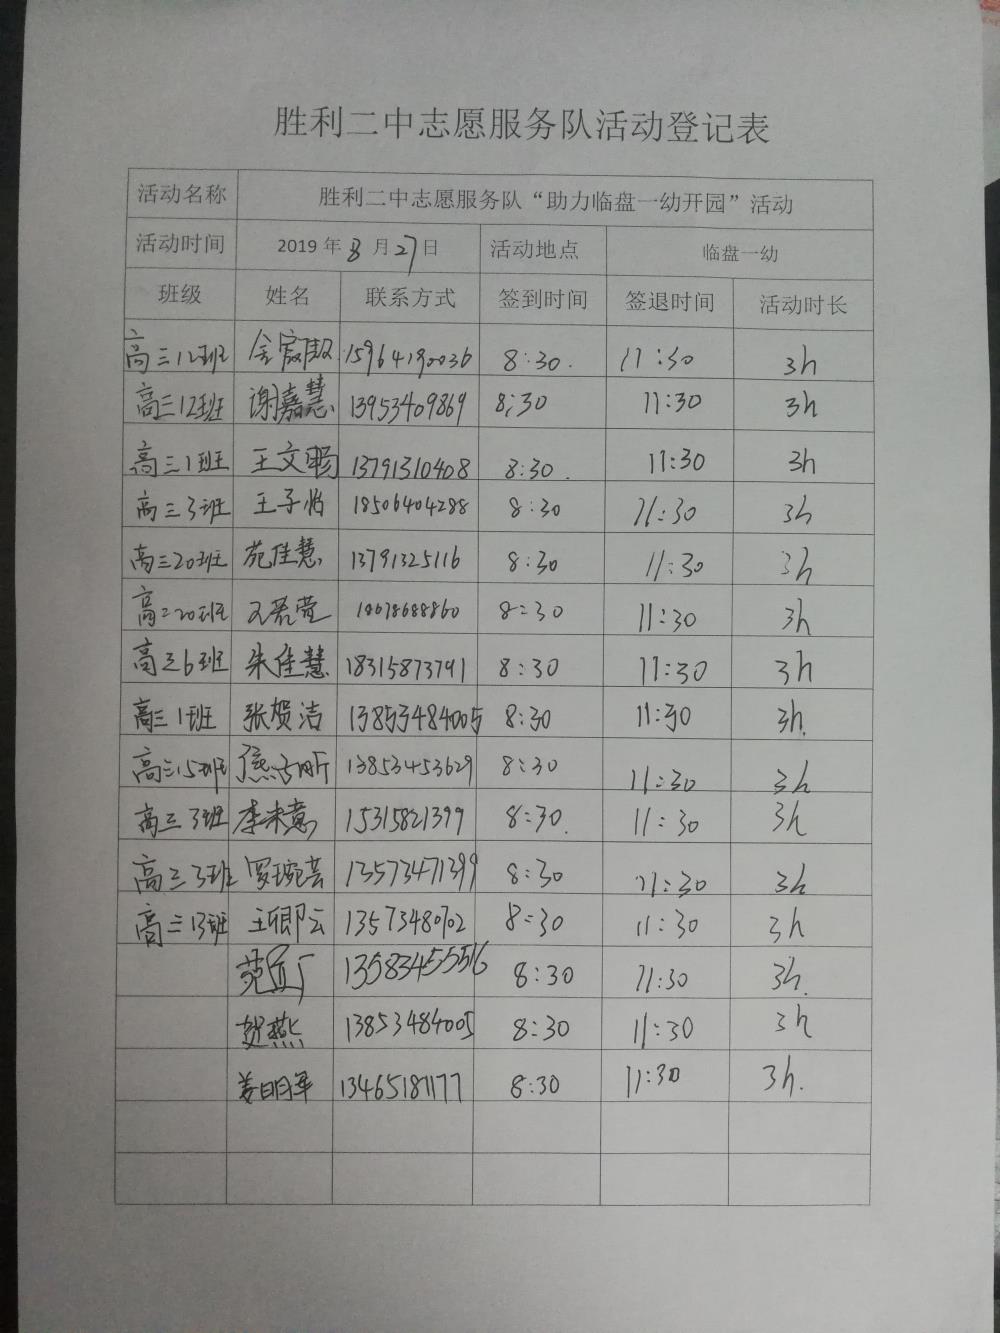 胜利二中志愿服务队活动登记表
活动名称 胜利二中志愿服务队“助力临盘一幼开园”活动
活动时间 2019年8月27日 活动地点 临盘一幼
班级 姓名 联系方式 签到时间 签退时间 活动时长
高三12班 15964190036 8:30. 11:30 3h
高三12班 谢嘉慧 13953409869 8:30 11:30 3h
高三1班 王文畅 13791310408 8:30. 11:30 3h
高三3班 王子怡 18506404288 8:30 11:30 3h
高三20班 苑佳慧 13791325116 8:30 11:30 3h
高二20班 8:30 11:30 3h
高三6班 朱佳慧 18315873791 8:30 11:30 3h
高三1班 张贺洁 13853484005 8:30 11:30 3h.
高三15班 13853453629 8:30 11:30 3h
高三3班 李未意 15315821399 8:30. 11:30 3h
高三3班 罗琬芸 13573471399 8:30 11:30 3h
高三13班 王卿云 13573480702 8:30 11:30 3h
13583455516 8:30 11:30 3h.
贺燕 13853484005 8:30 11:30 3h
姜明军 13465181177 8:30 11:30 3h.